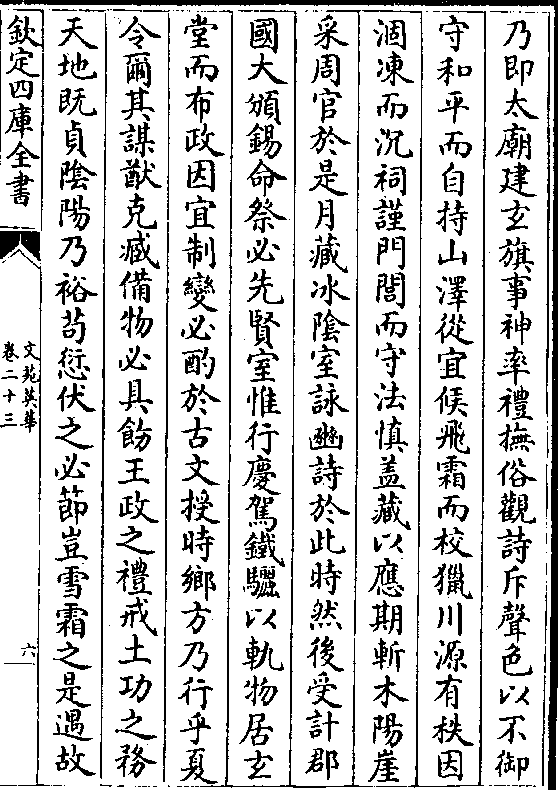 乃即太廟建玄旗事神率禮撫俗觀詩斥聲色以不御
守和平而自持山澤從宜候飛霜而校獵川源有秩因
涸凍而沉祠謹門閭而守法慎盖藏以應期斬木陽崖
采周官於是月藏冰陰室詠豳詩於此時然後受計郡
國大頒錫命祭必先賢室惟行慶駕鐵驪以軌物居玄
堂而布政因宜制變必酌於古文授時鄉方乃行乎夏
令爾其謀猷克臧備物必具飭王政之禮戒土功之務
天地既貞陰陽乃裕苟愆伏之必節豈雪霜之是遇故
欽定四庫全書
文苑英華
卷二十三
六